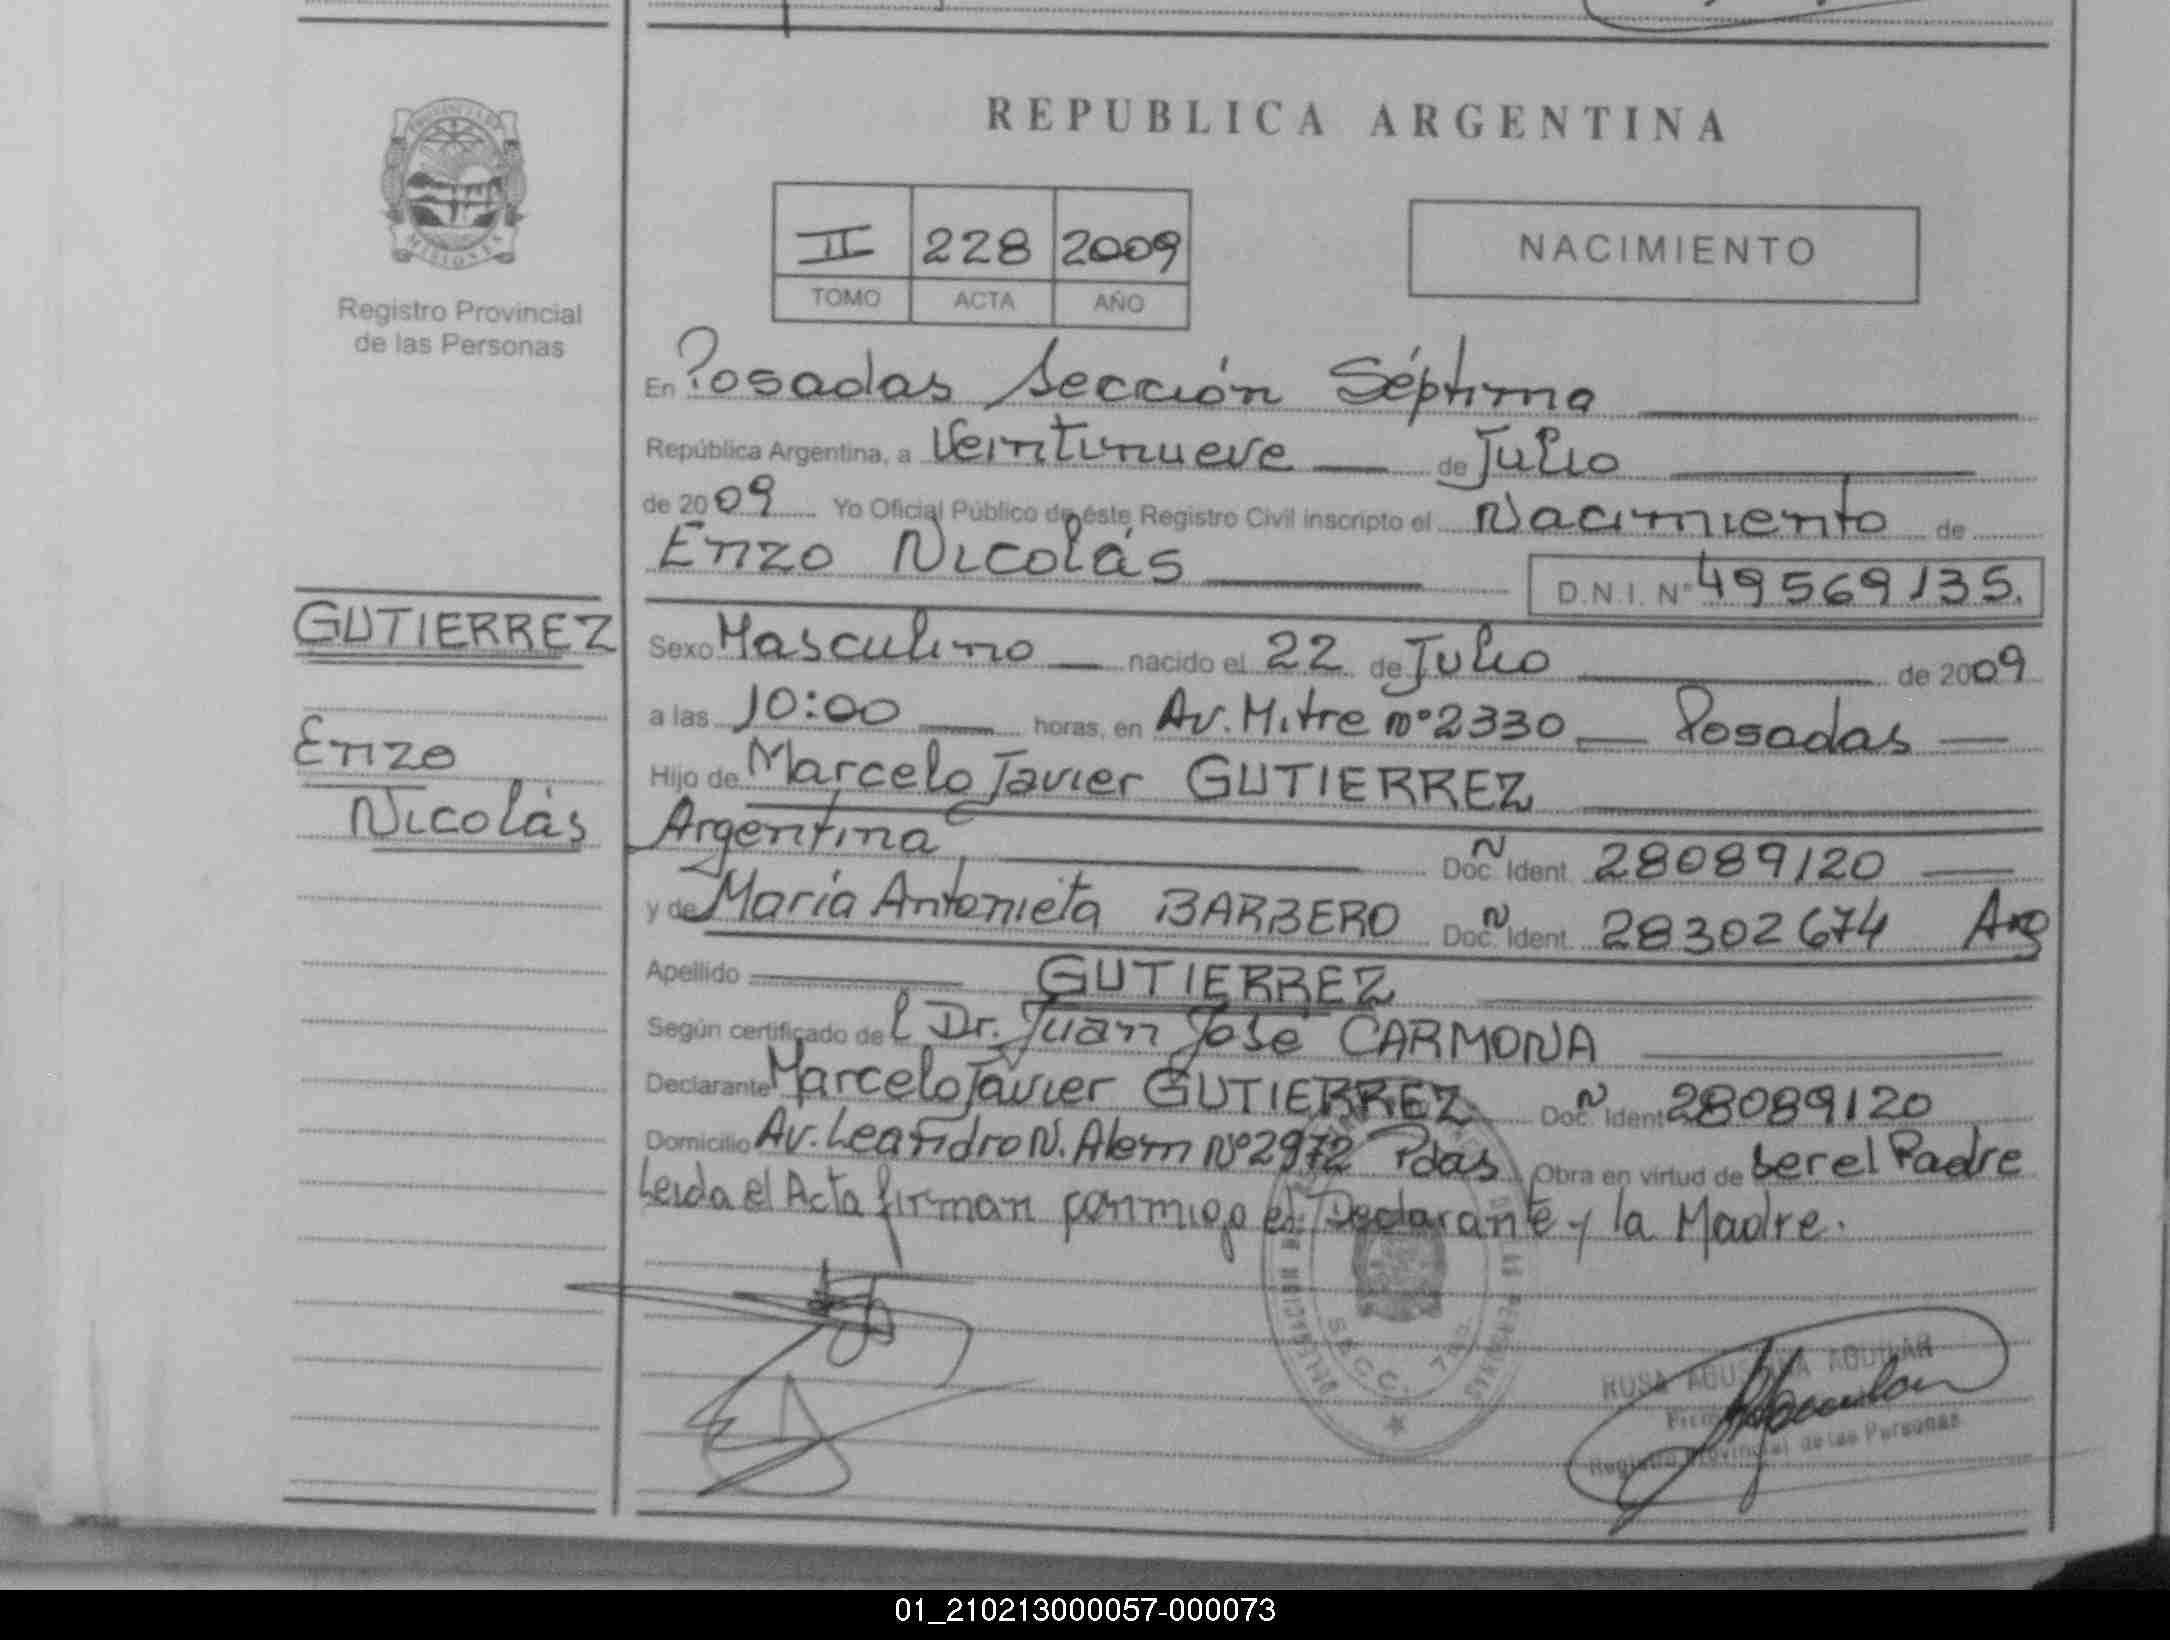 REPUBLICA ARGENTINA
II 228 2009
TOMO ACTA AÑO
NACIMIENTO
MISIONES
Registro Provincial
de las Personas
GUTIERREZ
Enzo
Nicolás
En Posadas Sección Séptima
República Argentina, a Veintinueve de Julio
de 2009 Yo Oficial Público de éste Registro Civil inscripto el Nacimiento de
Enzo Nicolás D.N.I. Nº 49569135.
Sexo Masculino nacido el 22 de Julio de 2009
a las 10:00 horas, en Av. Mitre nº 2330 Posadas
Hijo de Marcelo Javier GUTIERREZ
Argentina Doc. Ident. 28089120
y de María Antonieta BARBERO Doc. Ident. 28302674 Arg
Apellido GUTIERREZ
Según certificado del Dr. Juan José CARMONA
Declarante Marcelo Javier GUTIERREZ Doc. Ident 28089120
Domicilio Av. Leandro N. Alem Nº 2972 Pdas Obra en virtud de ser el Padre
Leida el Acta firman conmigo el Declarante y la Madre.
SECC. 7
ROSA AGUSTINA AGUILAR
Registro Provincial de las Personas
01_210213000057-000073